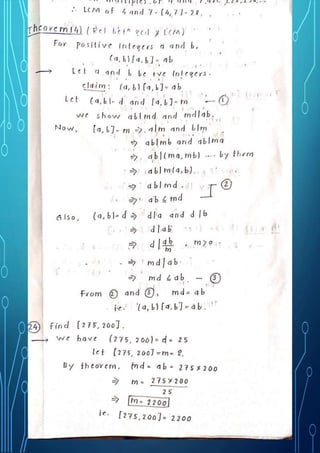 ∴ LCM of 4 and 7 = [4,7] = 28.
Theorem (4) (Rel betn gcd & LCM)
For positive integers a and b,
(a,b)[a,b] = ab
→ Let a and b be +ve integers.
claim: (a,b)[a,b] = ab
Let (a,b) = d and [a,b] = m — ①
we show ab|md and md|ab.
Now, [a,b] = m ⇒ a|m and b|m
⇒ ab|mb and ab|ma
⇒ ab|(ma, mb) --- by thm
⇒ ab|m(a,b)
⇒ ab|md . — ②
⇒ ab ≤ md
Also, (a,b) = d ⇒ d|a and d|b
⇒ d|ab
⇒ d|ab/m , m>0
⇒ md|ab
⇒ md ≤ ab — ③
From ② and ③, md = ab
ie. (a,b)[a,b] = ab.
24) Find [275, 200].
→ we have (275, 200) = d = 25
let [275, 200] = m = ?
By theorem, md = ab = 275 × 200
⇒ m = 275 × 200 / 25
⇒ m = 2200
ie. [275, 200] = 2200